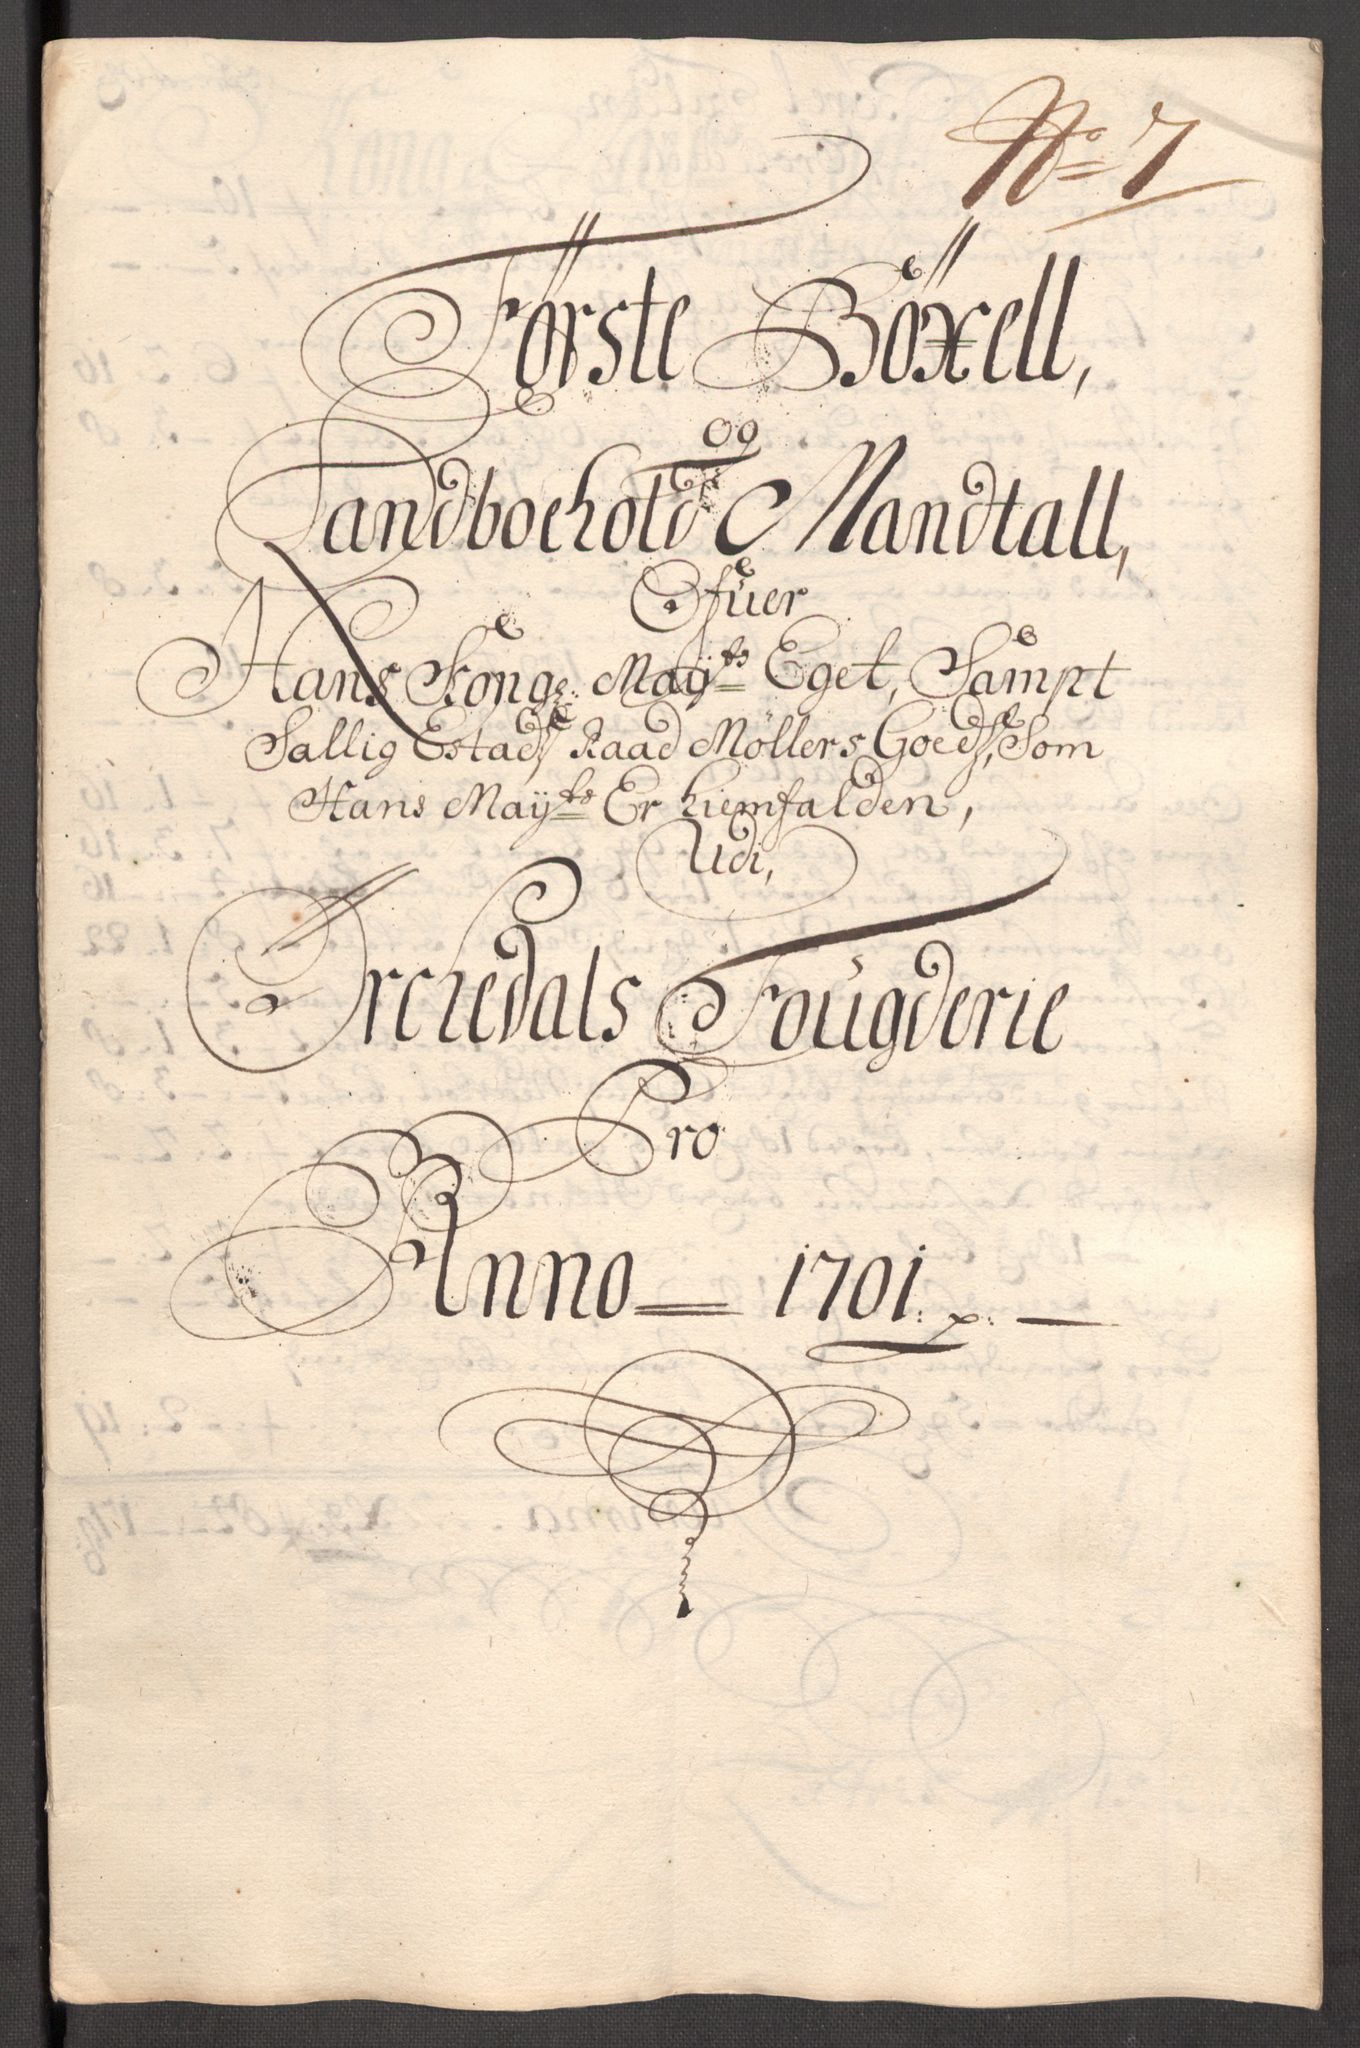 No 7
Første Böxell,
og
Landboehold Mandtall,
Ofuer
Hans Kong: Mayts Eget, Sampt
Sallig Estads Raad Möllers Goeds, Som
Hans Mayts Er hiemfalden,
Udi,
Orchedals Fougderie
Pro
Anno 1701.